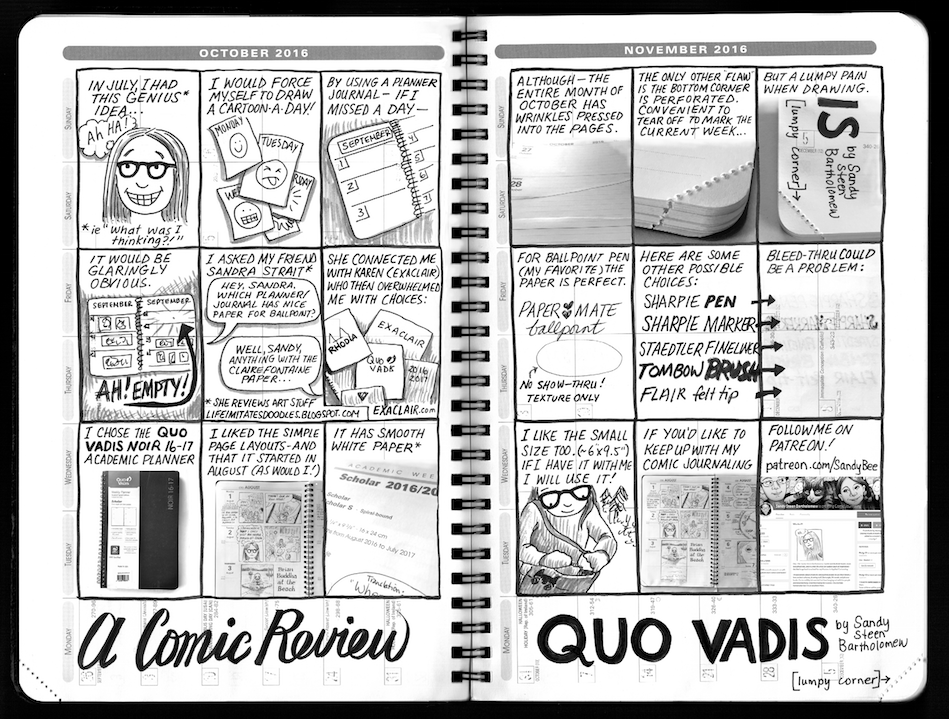 OCTOBER 2016
IN JULY, I HAD
THIS GENIUS*
IDEA...
Ah HA!
*ie "What was I
thinking?!"
I WOULD FORCE
MYSELF TO DRAW
A CARTOON-A-DAY!
MONDAY
TUESDAY
BY USING A PLANNER
JOURNAL – IF I
MISSED A DAY –
SEPTEMBER
1
2
3
IT WOULD BE
GLARINGLY
OBVIOUS.
SEPTEMBER
SEPTEMBER
AH! EMPTY!
I ASKED MY FRIEND
SANDRA STRAIT*
HEY, SANDRA,
WHICH PLANNER/
JOURNAL HAS NICE
PAPER FOR BALLPOINT?
WELL, SANDY,
ANYTHING WITH THE
CLAIREFONTAINE
PAPER...
*SHE REVIEWS ART STUFF
LIFEIMITATESDOODLES.BLOGSPOT.COM
SHE CONNECTED ME
WITH KAREN (EXACLAIR)
WHO THEN OVERWHELMED
ME WITH CHOICES:
RHODIA
EXACLAIR
QUO
VADIS
2016
2017
EXACLAIR.com
I CHOSE THE QUO
VADIS NOIR 16-17
ACADEMIC PLANNER
QUO
VADIS
NOIR 16-17
I LIKED THE SIMPLE
PAGE LAYOUTS-AND
THAT IT STARTED IN
AUGUST (AS WOULD I!)
AUGUST
1
2
3
Brian
Buddha
at the
Beach
IT HAS SMOOTH
WHITE PAPER*
ACADEMIC WEE
Scholar 2016/20
Scholar
Scholar S
Spiral bound
16 x 24 cm
from August 2016 to July 2017
Translation:
SUNDAY
SATURDAY
FRIDAY
THURSDAY
WEDNESDAY
TUESDAY
MONDAY
A Comic Review
NOVEMBER 2016
ALTHOUGH – THE
ENTIRE MONTH OF
OCTOBER HAS
WRINKLES PRESSED
INTO THE PAGES.
27
28
THE ONLY OTHER "FLAW"
IS THE BOTTOM CORNER
IS PERFORATED.
CONVENIENT TO
TEAR OFF TO MARK THE
CURRENT WEEK...
BUT A LUMPY PAIN
WHEN DRAWING.
IS
by Sandy
Steen
Bartholomew
[lumpy corner]→
FOR BALLPOINT PEN
(MY FAVORITE) THE
PAPER IS PERFECT.
PAPER MATE
ballpoint
NO SHOW-THRU!
TEXTURE ONLY
HERE ARE SOME
OTHER POSSIBLE
CHOICES:
SHARPIE PEN
SHARPIE MARKER
STAEDTLER FINELINER
TOMBOW BRUSH
FLAIR felt tip
BLEED-THRU COULD
BE A PROBLEM:
I LIKE THE SMALL
SIZE TOO. (~6"x9.5")
IF I HAVE IT WITH ME
I WILL USE IT!
IF YOU'D LIKE TO
KEEP UP WITH MY
COMIC JOURNALING
AUGUST
Brian
Buddha
at the
Beach
FOLLOW ME ON
PATREON!
patreon.com/SandyBee
SUNDAY
SATURDAY
FRIDAY
THURSDAY
WEDNESDAY
TUESDAY
MONDAY
QUO VADIS
by Sandy
Steen
Bartholomew
[lumpy corner]→